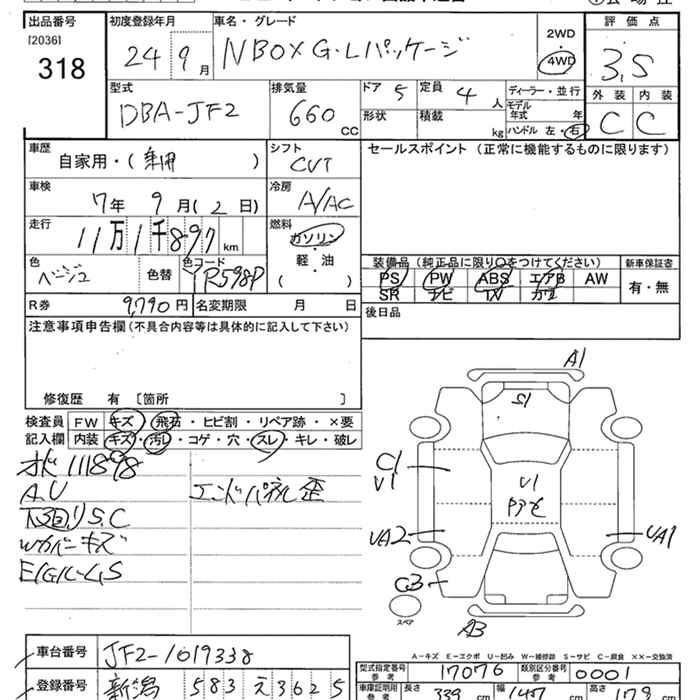 出品番号
[2036]
318
初度登録年月
24年9月
車名・グレード
NBOX G・Lパッケージ
2WD
4WD
評価点
3.5
型式
DBA-JF2
排気量
660 CC
ドア 5
定員 4人
形状
積載 kg
ディーラー・並行
モデル年式 年
ハンドル 左・右
外装 内装
C C
車歴
自家用・( )
シフト
CVT
セールスポイント (正常に機能するものに限ります)
車検
7年 9月(2日)
冷房
A/AC
走行
11万1千897km
燃料
ガソリン
軽・油
( )
色
ベージュ
色替
色コード
YR598P
装備品(純正品に限り○をつけてください)
新車保証書
PS PW ABS エアB AW
SR ナビ TV カワ
有・無
R券 9,790円
名変期限 月 日
後日品
注意事項申告欄(不具合内容等は具体的に記入して下さい)
修復歴 有 [箇所 ]
検査員記入欄
FW キズ・飛石・ヒビ割・リペア跡・×要
内装 キズ・汚レ・コゲ・穴・スレ・キレ・破レ
111898
A.U
エンドパネル歪
下回りS.C
Wカバーキズ
E/Gルーム S
A1
S1
C1
V1
U1
UA2
UA1
C3
スペア
A3
A-キズ E-エクボ U-凹み W-補修跡 S-サビ C-腐食 ××-交換済
車台番号 JF2-1019338
型式指定番号 参考 17076
類別区分番号 参考 0001
登録番号 新潟 583 え 3625
車庫証明用 参考
長さ 339 cm
幅 147 cm
高さ 178 cm